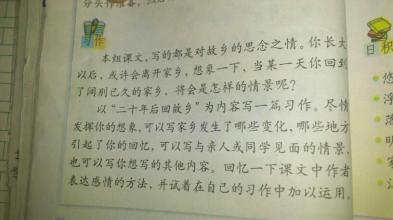 习作
本组课文，写的都是对故乡的思念之情。你长大
以后，或许会离开家乡，想象一下，当某一天你回到
了阔别已久的家乡，将会是怎样的情景呢？
以“二十年后回故乡”为内容写一篇习作。尽情
发挥你的想象，可以写家乡发生了哪些变化，哪些地方
引起了你的回忆，可以写与亲人或同学见面的情景，
也可以写你想写的其他内容。回忆一下课文中作者
表达感情的方法，并试着在自己的习作中加以运用。
日积